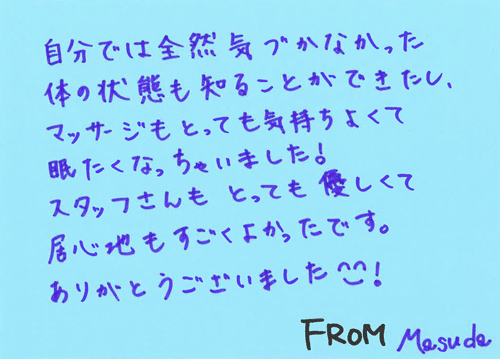 自分では全然気づかなかった
体の状態も知ることができたし、
マッサージもとっても気持ちよくて
眠たくなっちゃいました!
スタッフさんもとっても優しくて
居心地もすごくよかったです。
ありがとうございました^^!
FROM Masuda